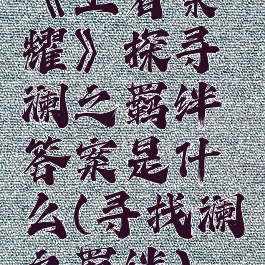 《王者荣
耀》探寻
澜之羁绊
答案是什
么(寻找澜
之羁绊)